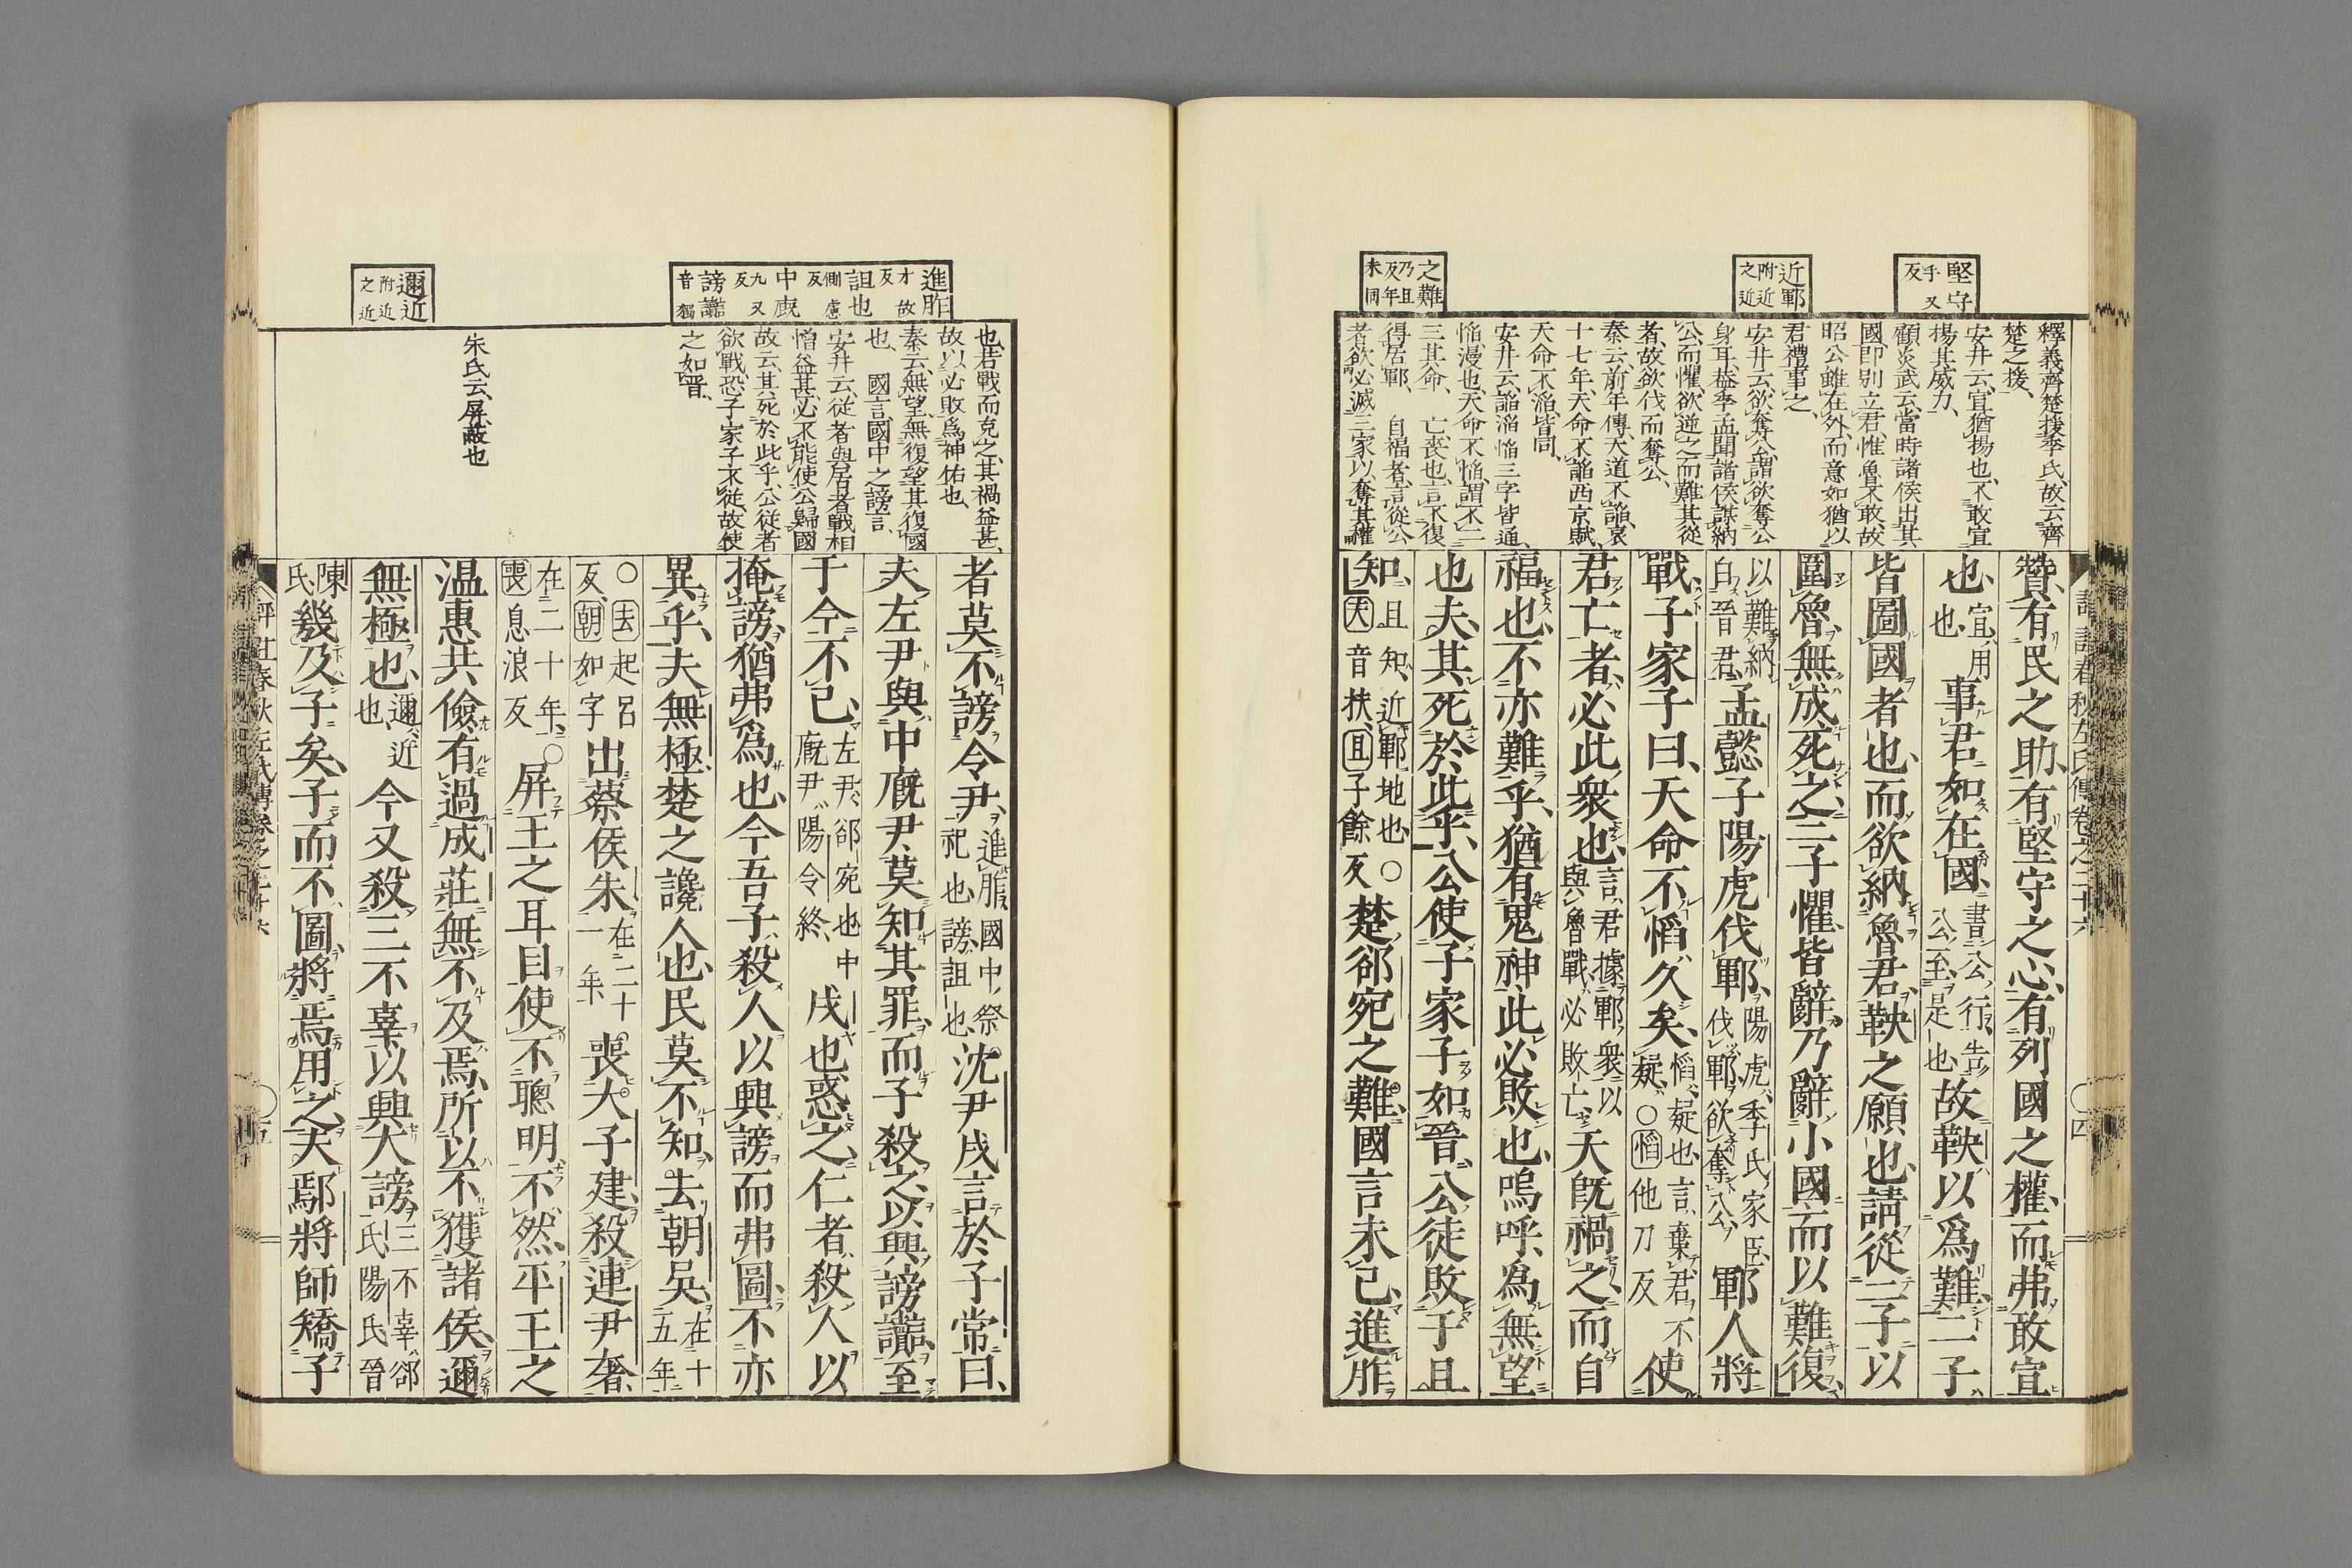 堅守
手又反
近鄆
附近之近
之難
乃且反年末同
釋義齊楚援季氏、故云齊
楚之援、
安井云、宜猶揚也、不敢宣
揚其威力、
顧炎武云、當時諸侯出其
國即別立君、惟魯不敢、故
昭公雖在外、而意如猶以
君禮事之、
安井云、欲奪公、謂欲奪公
身耳、葢季孟聞諸侯謀納
公、而懼、欲逆之、而難其從
者、故欲伐而奪公、
秦云、前年傳、天道不謟、哀
十七年、天命不謟、西京賦、
天命不滔、皆同、
安井云、謟滔慆三字皆通、
慆、漫也、天命不慆、謂不二
三其命、亡、喪也、言不復
得居鄆、自福者、言從公
者、欲必滅三家、以奪其權
贊、有民之助、有堅守之心、有列國之權、而弗敢宣
也、宣、用也、事君如在國、書公行、告公至、是也、故鞅以爲難、二子
皆圖國者也、而欲納魯君、鞅之願也、請從二子以
圍魯、無成死之、二子懼、皆辭、乃辭小國、而以難復、
以難納白晉君、孟懿子陽虎伐鄆、陽虎、季氏家臣、伐鄆、欲奪公、鄆人將
戰、子家子曰、天命不慆久矣、慆、疑也、言棄君不疑、○慆他刀反使
君亡者、必此衆也、言君據鄆衆以與魯戰、必敗亡、天既禍之、而自
福也、不亦難乎、猶有鬼神、此必敗也、嗚呼、爲無望
也夫、其死於此乎、公使子家子如晉、公徒敗于且
知、且知、近鄆地也、○夫音扶、且子餘反楚郤宛之難、國言未已、進胙
評註春秋左氏傳卷之二十六
四
進胙
才故反
詛也
側慮反
中廐
九又反
謗讟
音獨
邇近
附近之近
也、若戰而克之、其禍益甚、
故以必敗爲神佑也、
秦云、無望、無復望其復國
也、國言、國中之謗言、
安井云、從者與居者戰、相
憎益甚、必不能使公歸國、
故云、其死於此乎、公從者
欲戰、恐子家子不從、故使
之如晉、
朱氏云、屏、蔽也
者莫不謗令尹、進胙、國中祭祀也、謗、詛也、沈尹戌言於子常曰、
夫左尹與中廐尹、莫知其罪、而子殺之、以興謗讟、至
于今不已、左尹、郤宛也、中廐尹、陽令終、戌也惑之、仁者殺人以
掩謗、猶弗爲也、今吾子殺人以興謗、而弗圖、不亦
異乎、夫無極、楚之讒人也、民莫不知、去朝吳、在十五年
○去起呂反、朝如字出蔡侯朱、在二十一年喪大子建、殺連尹奢、
在二十年、○喪息浪反屏王之耳目、使不聰明、不然、平王之
温惠共儉、有過成莊、無不及焉、所以不獲諸侯、邇
無極也、邇、近也、今又殺三不辜、以興大謗、三不辜、郤氏陽氏晉
陳氏、幾及子矣、子而不圖、將焉用之、夫鄢將師矯子
評註春秋左氏傳卷之二十六
五